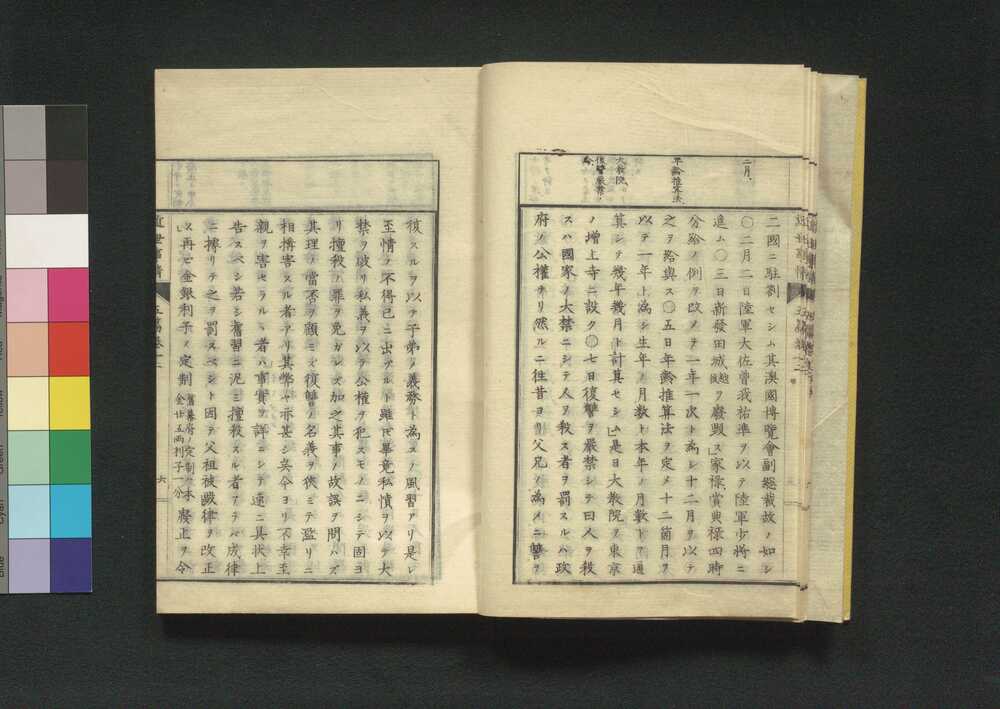 二月、
年齡推筭法、
大敎院、
復讐嚴禁ノ
令、
二國ニ駐劄セシム其澳國博覽會副總裁故ノ如シ
〇二月二日陸軍大佐曾我祐準ヲ以テ陸軍少將ニ
進ム〇三日新發田城越後ヲ廢毀ス家祿賞典祿四時
分給ノ例ヲ改メテ一年一次ト爲シテ十二月ヲ以テ
之ヲ給與ス〇五日年齡推算法ヲ定メ十二箇月ヲ
以テ一年ト爲シ生年ノ月數ト本年ノ月數トヲ通
算シテ幾年幾月ト計算セシム是日大敎院ヲ東京
ノ增上寺ニ設ク〇七日復讐ヲ嚴禁シテ曰人ヲ殺
スハ國家ノ大禁ニシテ人ヲ殺ス者ヲ罰スルハ政
府ノ公權ナリ然ルニ往昔ヨリ父兄ノ爲メニ讐ヲ
復スルヲ以テ子弟ノ義務ト爲スノ風習アリ是レ
至情ノ不得已ニ出ヅルト雖𪜈畢竟私憤ヲ以テ大
禁ヲ破リ私義ヲ以テ公權ヲ犯スモノニシテ固ヨ
リ擅殺ノ罪ヲ免ガレズ加之其事ノ故誤ヲ問ハズ
其理ノ當否ヲ顧ミズ復讐ノ名義ヲ挾ミテ濫リニ
相搆害スル者アリ其弊ヤ亦甚シ矣今ヨリ不幸至
親ヲ害セラルヽ者ハ事實ヲ詳ニシテ速ニ其狀上
告スベシ若シ舊習ニ泥ミ擅殺スル者アラバ成律
ニ據リテ之ヲ罰スベシト因テ父祖被毆律ヲ改正
ス再ビ金銀利子ノ定制舊幕府ノ定制ハ本金廿五兩利子一分廢正ヲ令
近世事情
五篇卷十二
六